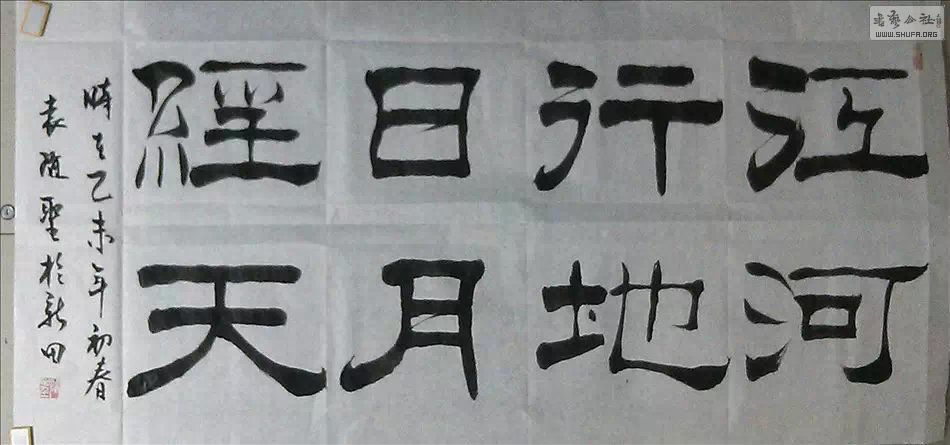 江河
行地
日月
經天
時在乙未年初春
袁聖於新田
書藝公社
WWW.SHUFA.ORG